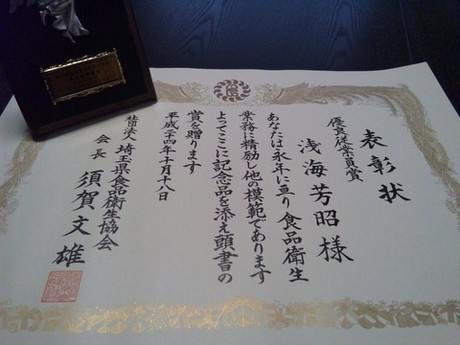 表彰状
優良従業員賞
浅海芳昭様
あなたは永年に亘り食品衛生
業務に精励し他の模範であります
よってここに記念品を添え頭書の
賞を贈ります
平成二十四年十月十八日
社団法人 埼玉県食品衛生協会
会長 須賀文雄